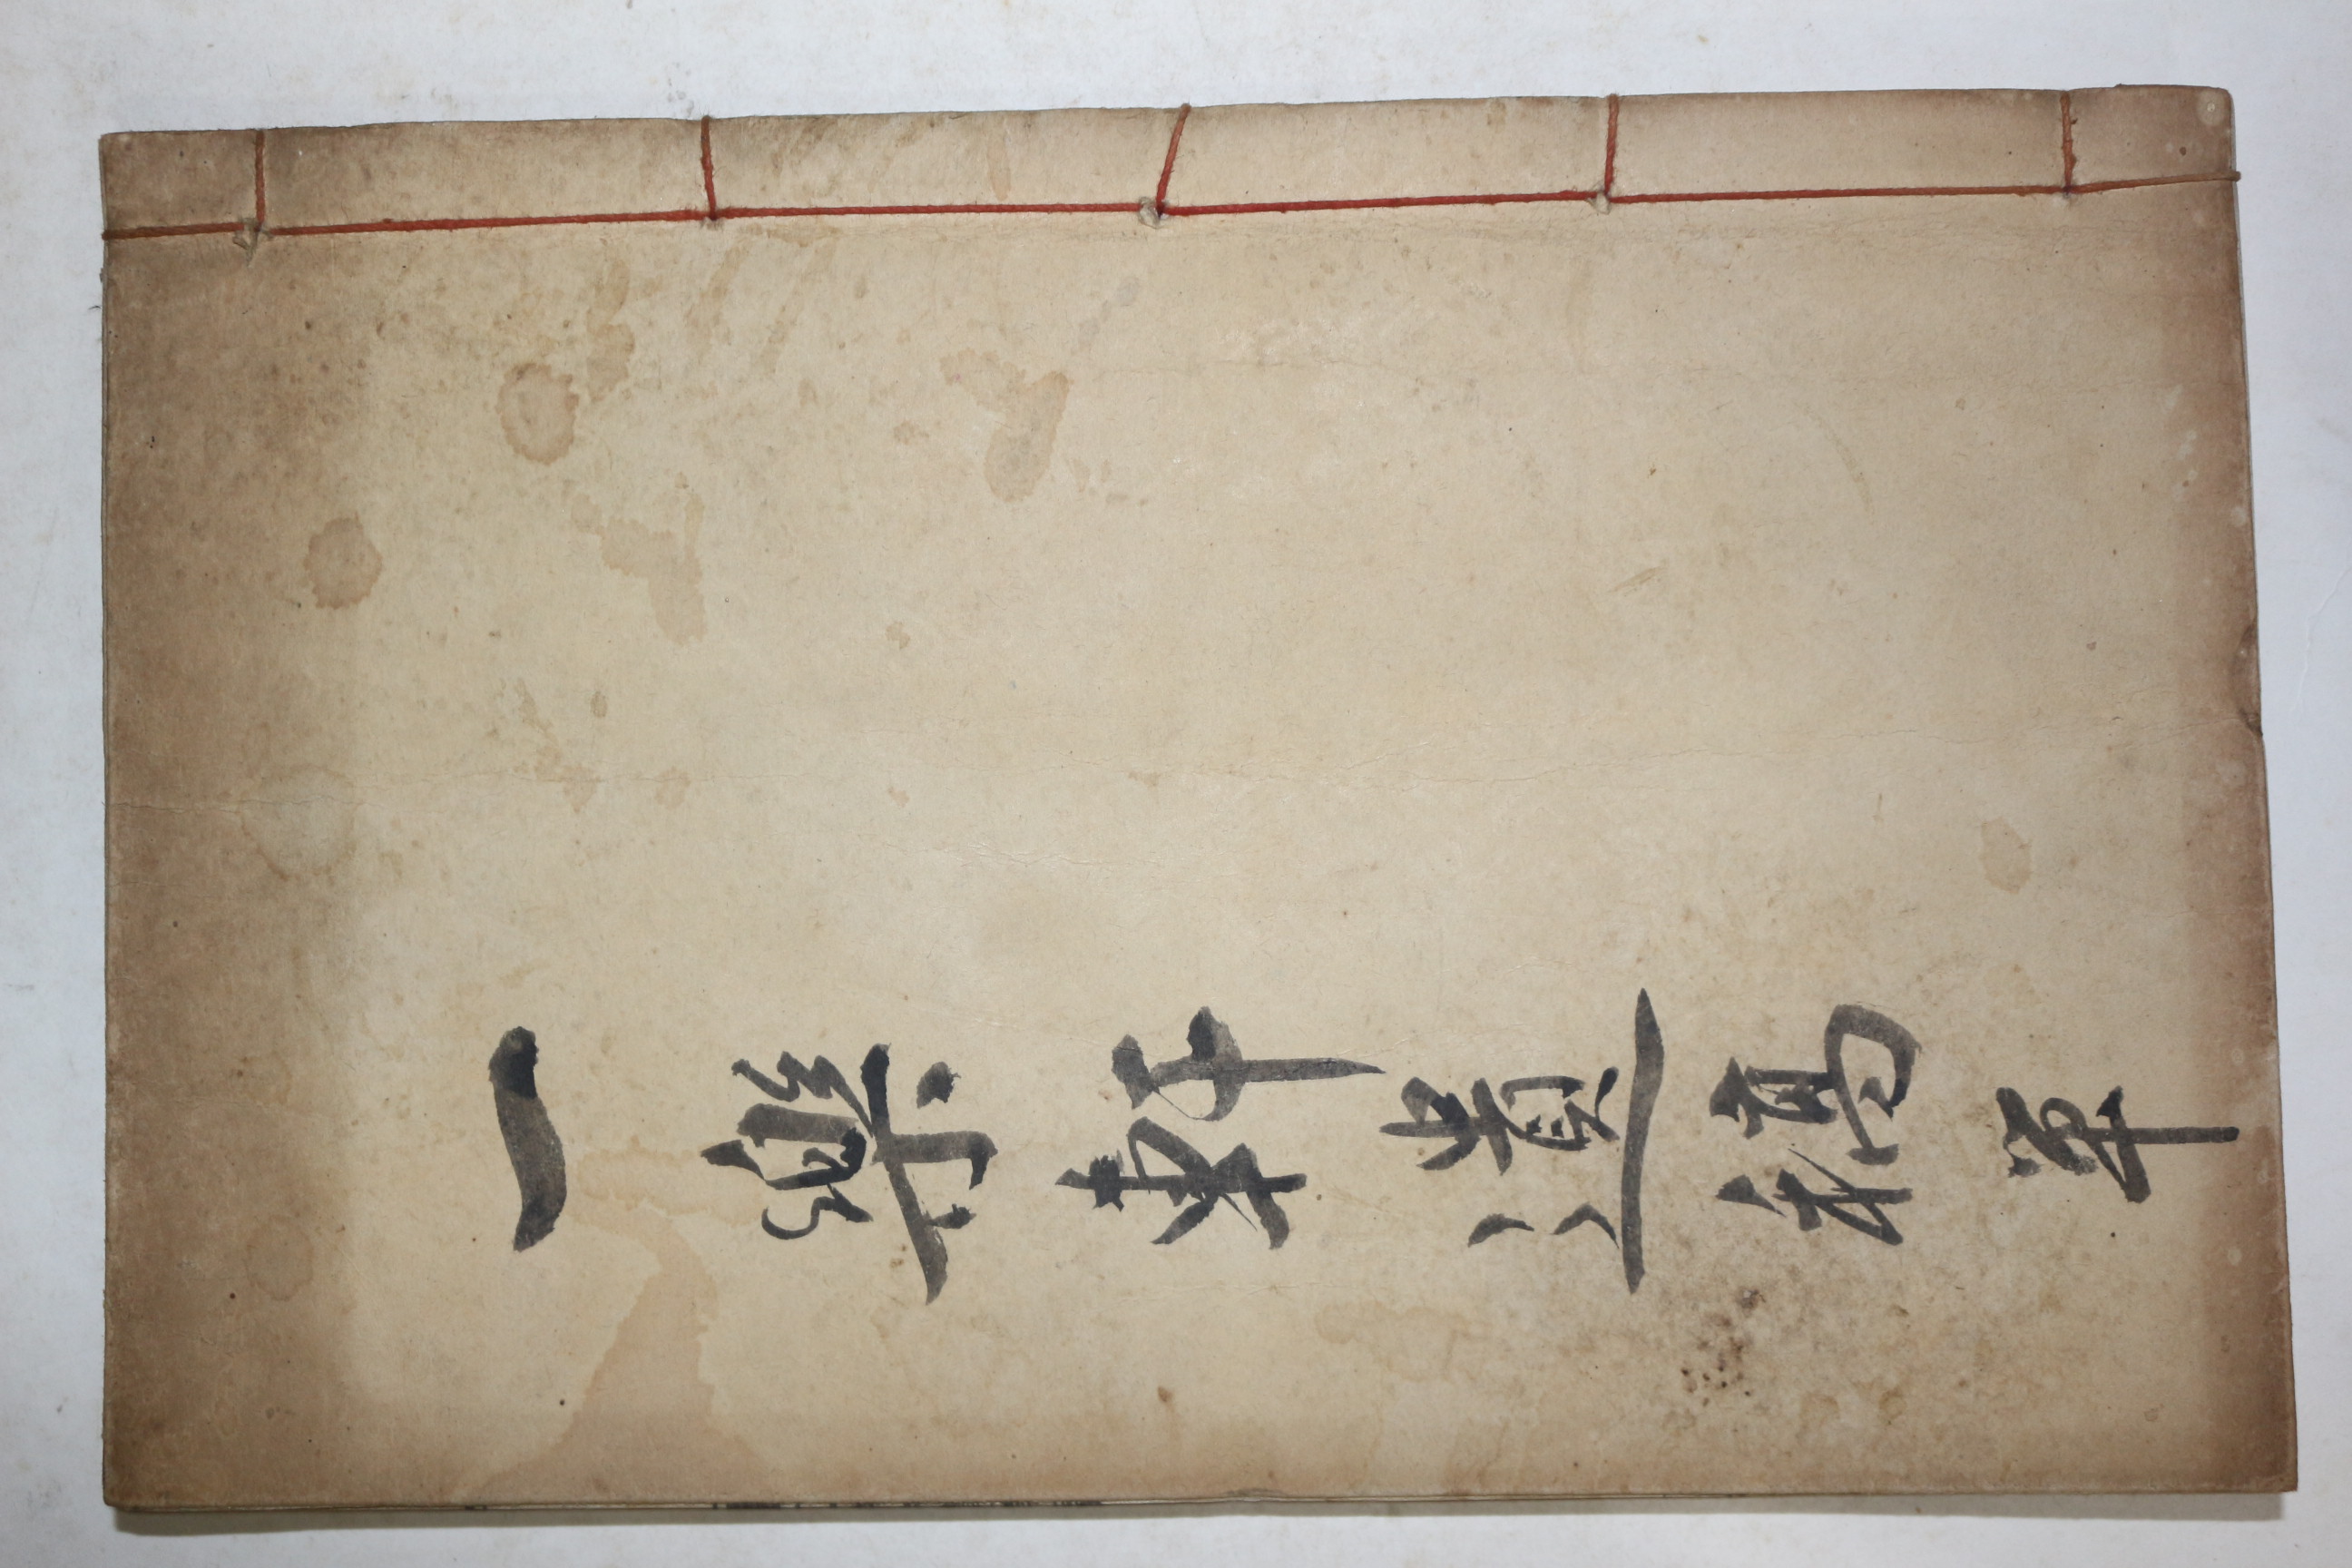 一樂軒遺稿單